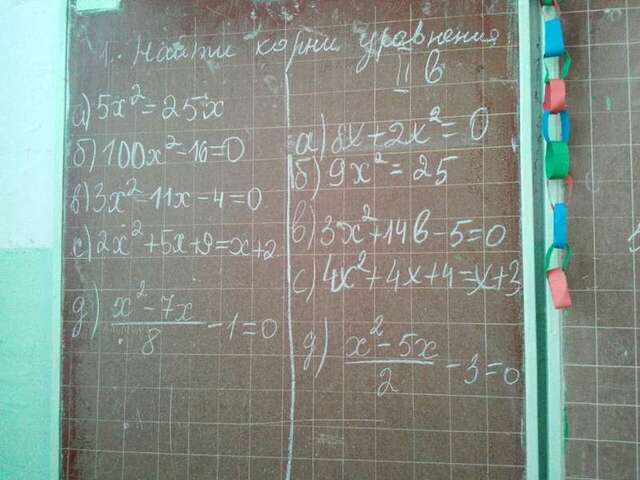 1. Найти корни уравнения
а) 5x² = 25x
б) 100x² - 16 = 0
в) 3x² = 11x - 4 = 0
с) 2x² + 5x + 9 = x + 2
д) (x² - 7x)/8 - 1 = 0
II в
а) 8x + 2x² = 0
б) 9x² = 25
в) 3x² + 14в - 5 = 0
с) 4x² + 4x + 4 = x + 3
д) (x² - 5x)/2 - 3 = 0